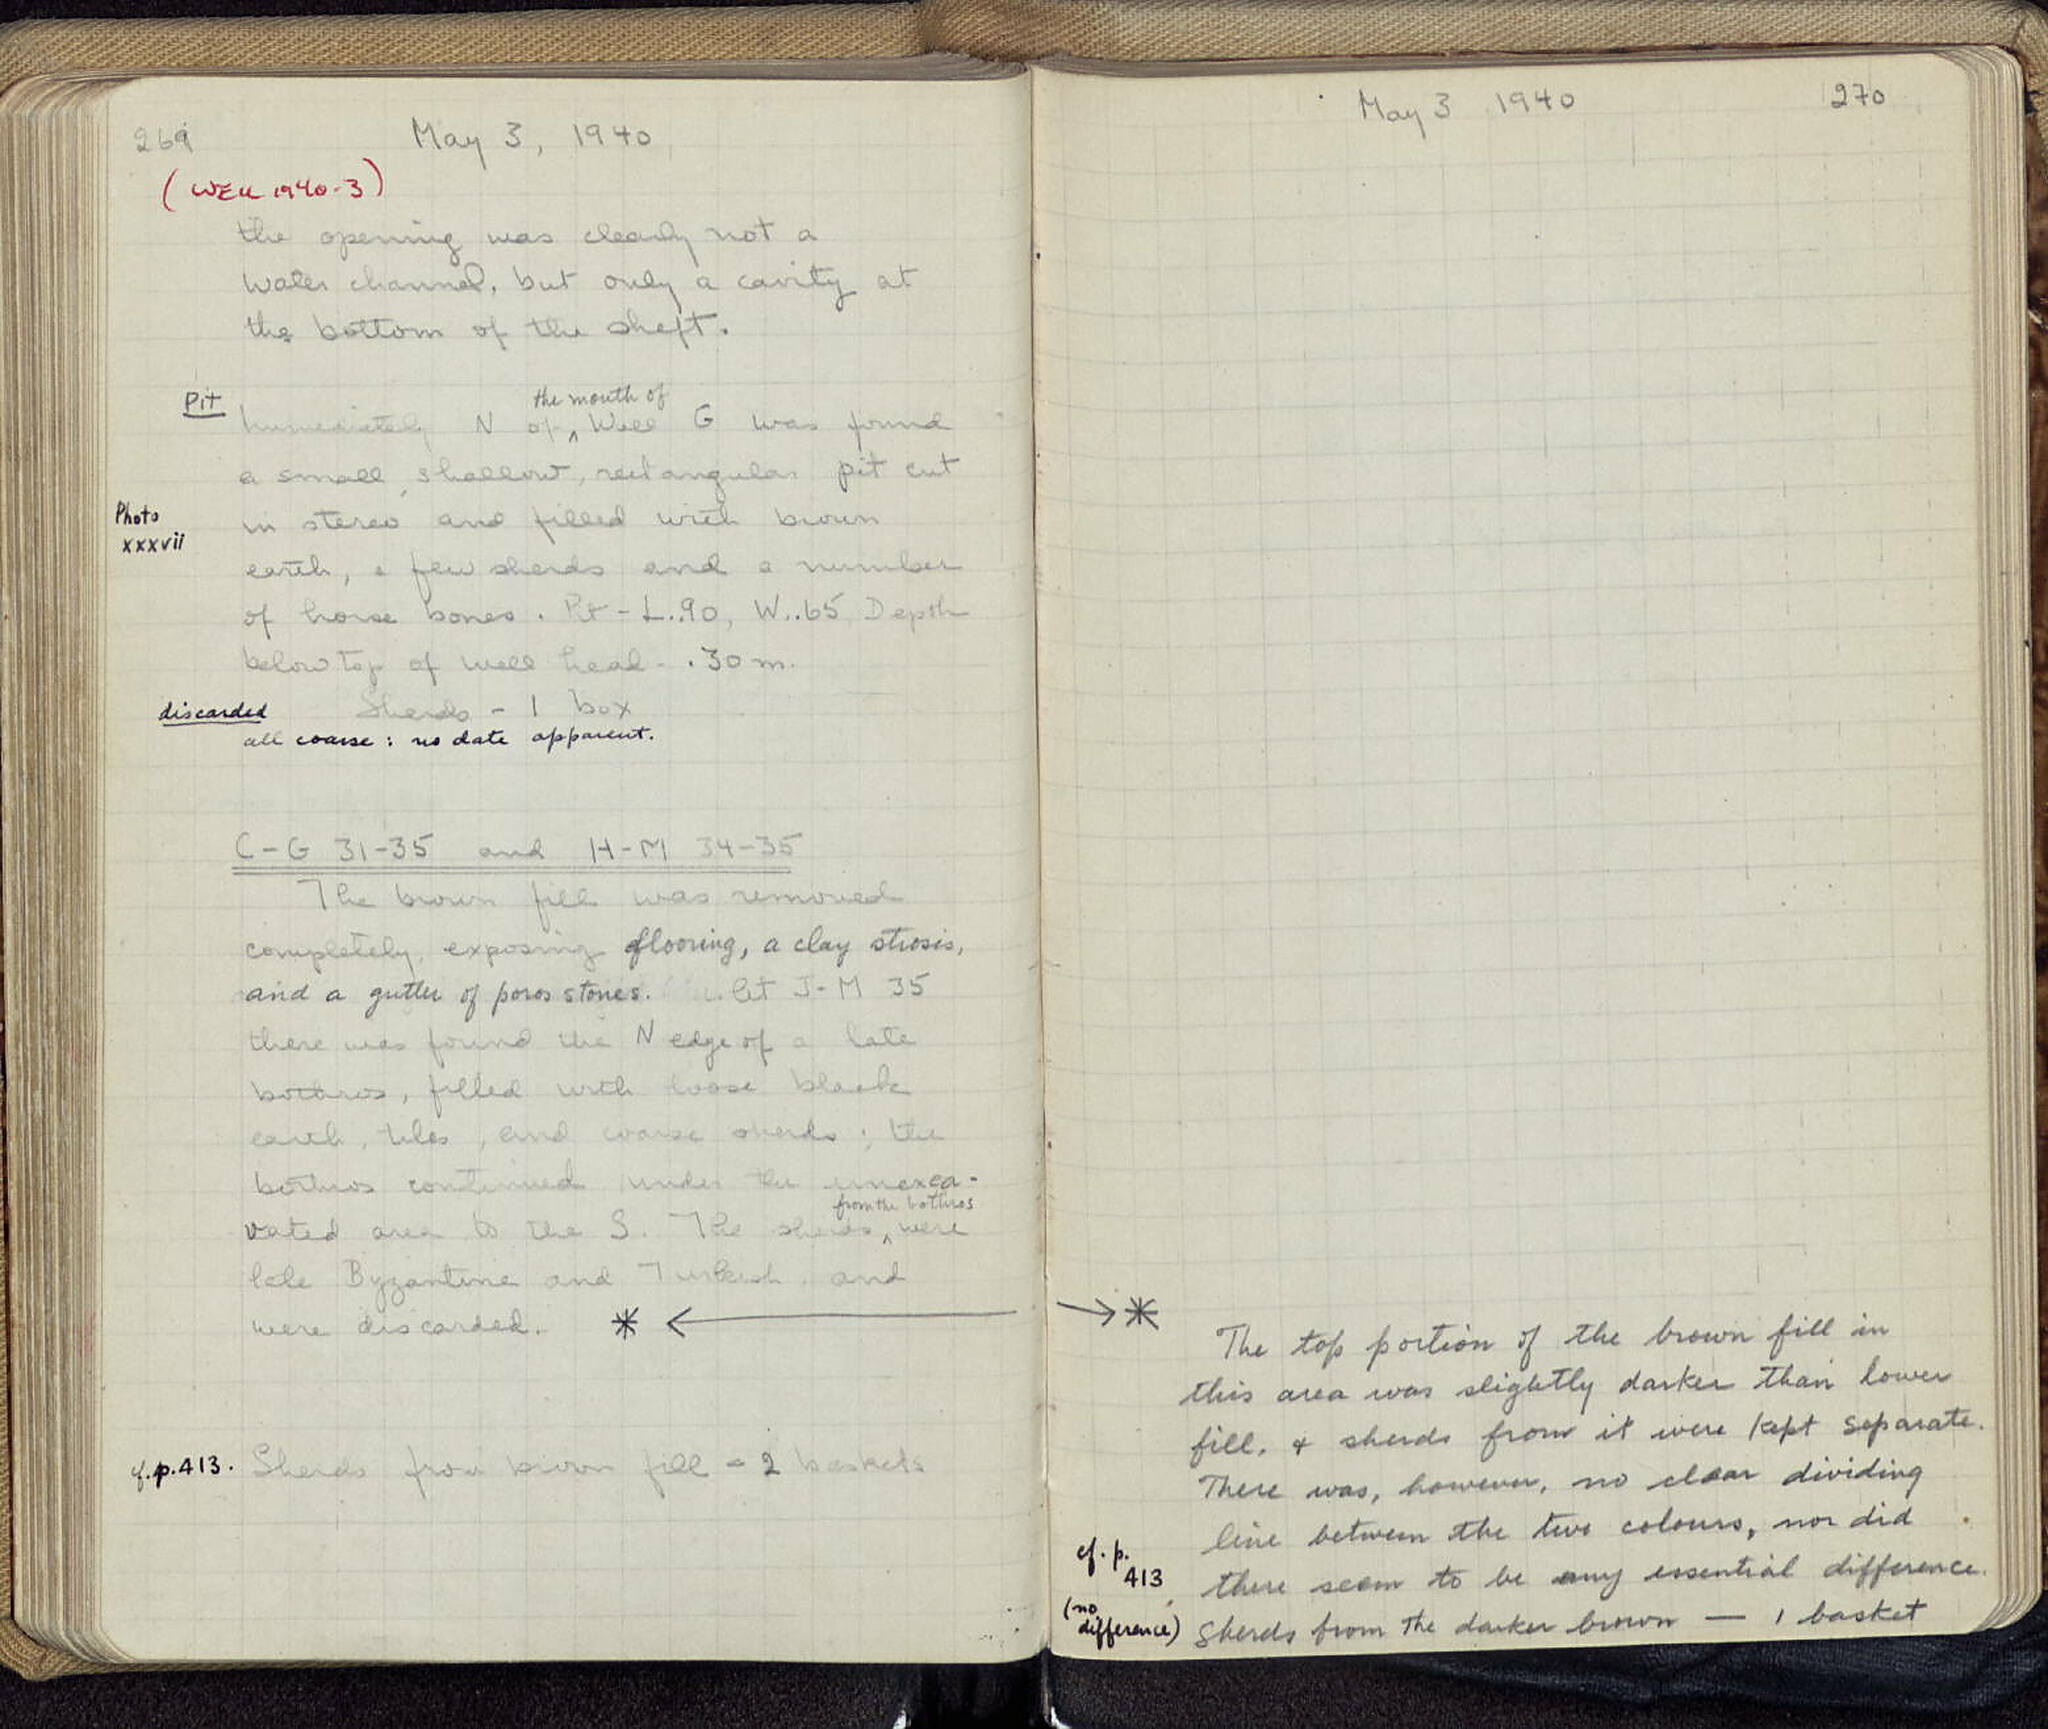 269
May 3, 1940
(WELL 1940-3)
the opening was clearly not a
water channel, but only a cavity at
the bottom of the shaft.
Pit
the mouth of
Immediately N of ^ Well G was found
a small, shallow, rectangular pit cut
Photo
xxxvii
in stereo and filled with brown
earth, a few sherds and a number
of horse bones. Pit - L..90, W..65 Depth
below top of well head - .30 m.
discarded
Sherds - 1 box
all coarse: no date apparent.
C-G 31-35 and H-M 34-35
The brown fill was removed
completely, exposing flooring, a clay strosis,
and a gutter of poros stones. At J-M 35
there was found the N edge of a late
bothros, filled with loose black
earth, tiles, and coarse sherds; the
bothros continued under the unexca-
from the bothros
vated area to the S. The sherds ^ were
late Byzantine and Turkish and
were discarded. * ←
cf. p. 413. Sherds from brown fill - 2 baskets
May 3 1940
270
→ *
The top portion of the brown fill in
this area was slightly darker than lower
fill, & sherds from it were kept separate.
There was, however, no clear dividing
line between the two colours, nor did
cf. p.
413
there seem to be any essential difference.
(no
difference)
Sherds from the darker brown — 1 basket